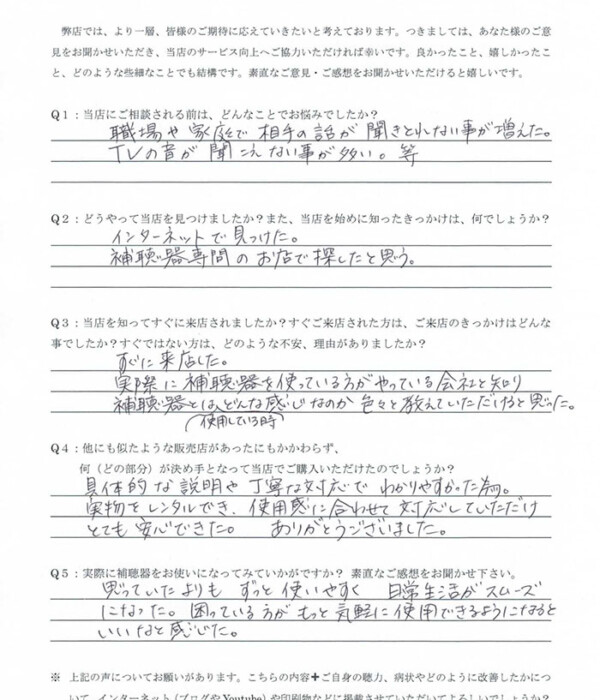 弊店では、より一層、皆様のご期待に応えていきたいと考えております。つきましては、あなた様のご意
見をお聞かせいただき、当店のサービス向上へご協力いただければ幸いです。良かったこと、嬉しかったこ
と、どのような些細なことでも結構です。素直なご意見・ご感想をお聞かせいただけると嬉しいです。
Q1：当店にご相談される前は、どんなことでお悩みでしたか？
職場や家庭で相手の話が聞きとれない事が増えた。
TVの音が聞こえない事が多い。等
Q2：どうやって当店を見つけましたか？また、当店を始めに知ったきっかけは、何でしょうか？
インターネットで見つけた。
補聴器専門のお店で探したと思う。
Q3：当店を知ってすぐに来店されましたか？すぐご来店された方は、ご来店のきっかけはどんな
事でしたか？すぐではない方は、どのような不安、理由がありましたか？
すぐに来店した。
実際に補聴器を使っている方がやっている会社と知り
補聴器とは、どんな感じなのか色々と教えていただけると思った。
（使用している時）
Q4：他にも似たような販売店があったにもかかわらず、
何（どの部分）が決め手となって当店でご購入いただけたのでしょうか？
具体的な説明や丁寧な対応でわかりやすかった為。
実物をレンタルでき、使用感に合わせて対応していただけ
とても安心できた。 ありがとうございました。
Q5：実際に補聴器をお使いになってみていかがですか？ 素直なご感想をお聞かせ下さい。
思っていたよりもずっと使いやすく 日常生活がスムーズ
になった。困っている方がもっと気軽に使用できるようになると
いいなと感じた。
※ 上記の声についてお願いがあります。こちらの内容+ご自身の聴力、病状やどのように改善したかにつ
いて、インターネット（ブログやYoutube）や印刷物などに掲載させていただいてよろしいでしょうか？